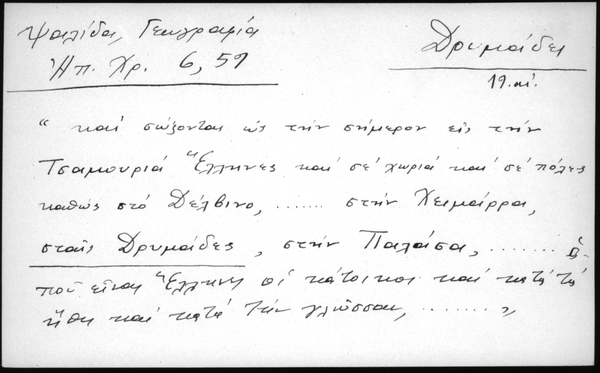 Ψαλίδα, Γεωγραφία
Ἠπ. Χρ. 6, 59
Δρυμάδες
19. αἰ.
" καί σώζονται ὡς τήν σήμερον εἰς τήν
Τσαμουριά Ἕλληνες καί σέ χωριά καί σέ πόλεις
καθώς στό Δέλβινο, ....... στήν Χειμάρρα,
σταῖς Δρυμάδες, στήν Παλάσα, ........ ὁ-
ποῦ εἶναι Ἕλληνες οἱ κάτοικοι καί κατά τά
ἤθη καί κατά τήν γλῶσσαν, ........ „